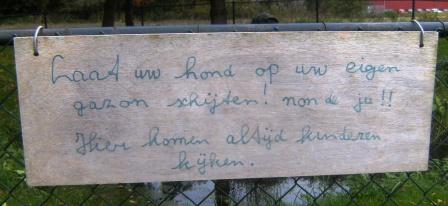 Laat uw hond op uw eigen
gazon schijten! non de ju!!
Hier komen altijd kinderen
kijken.